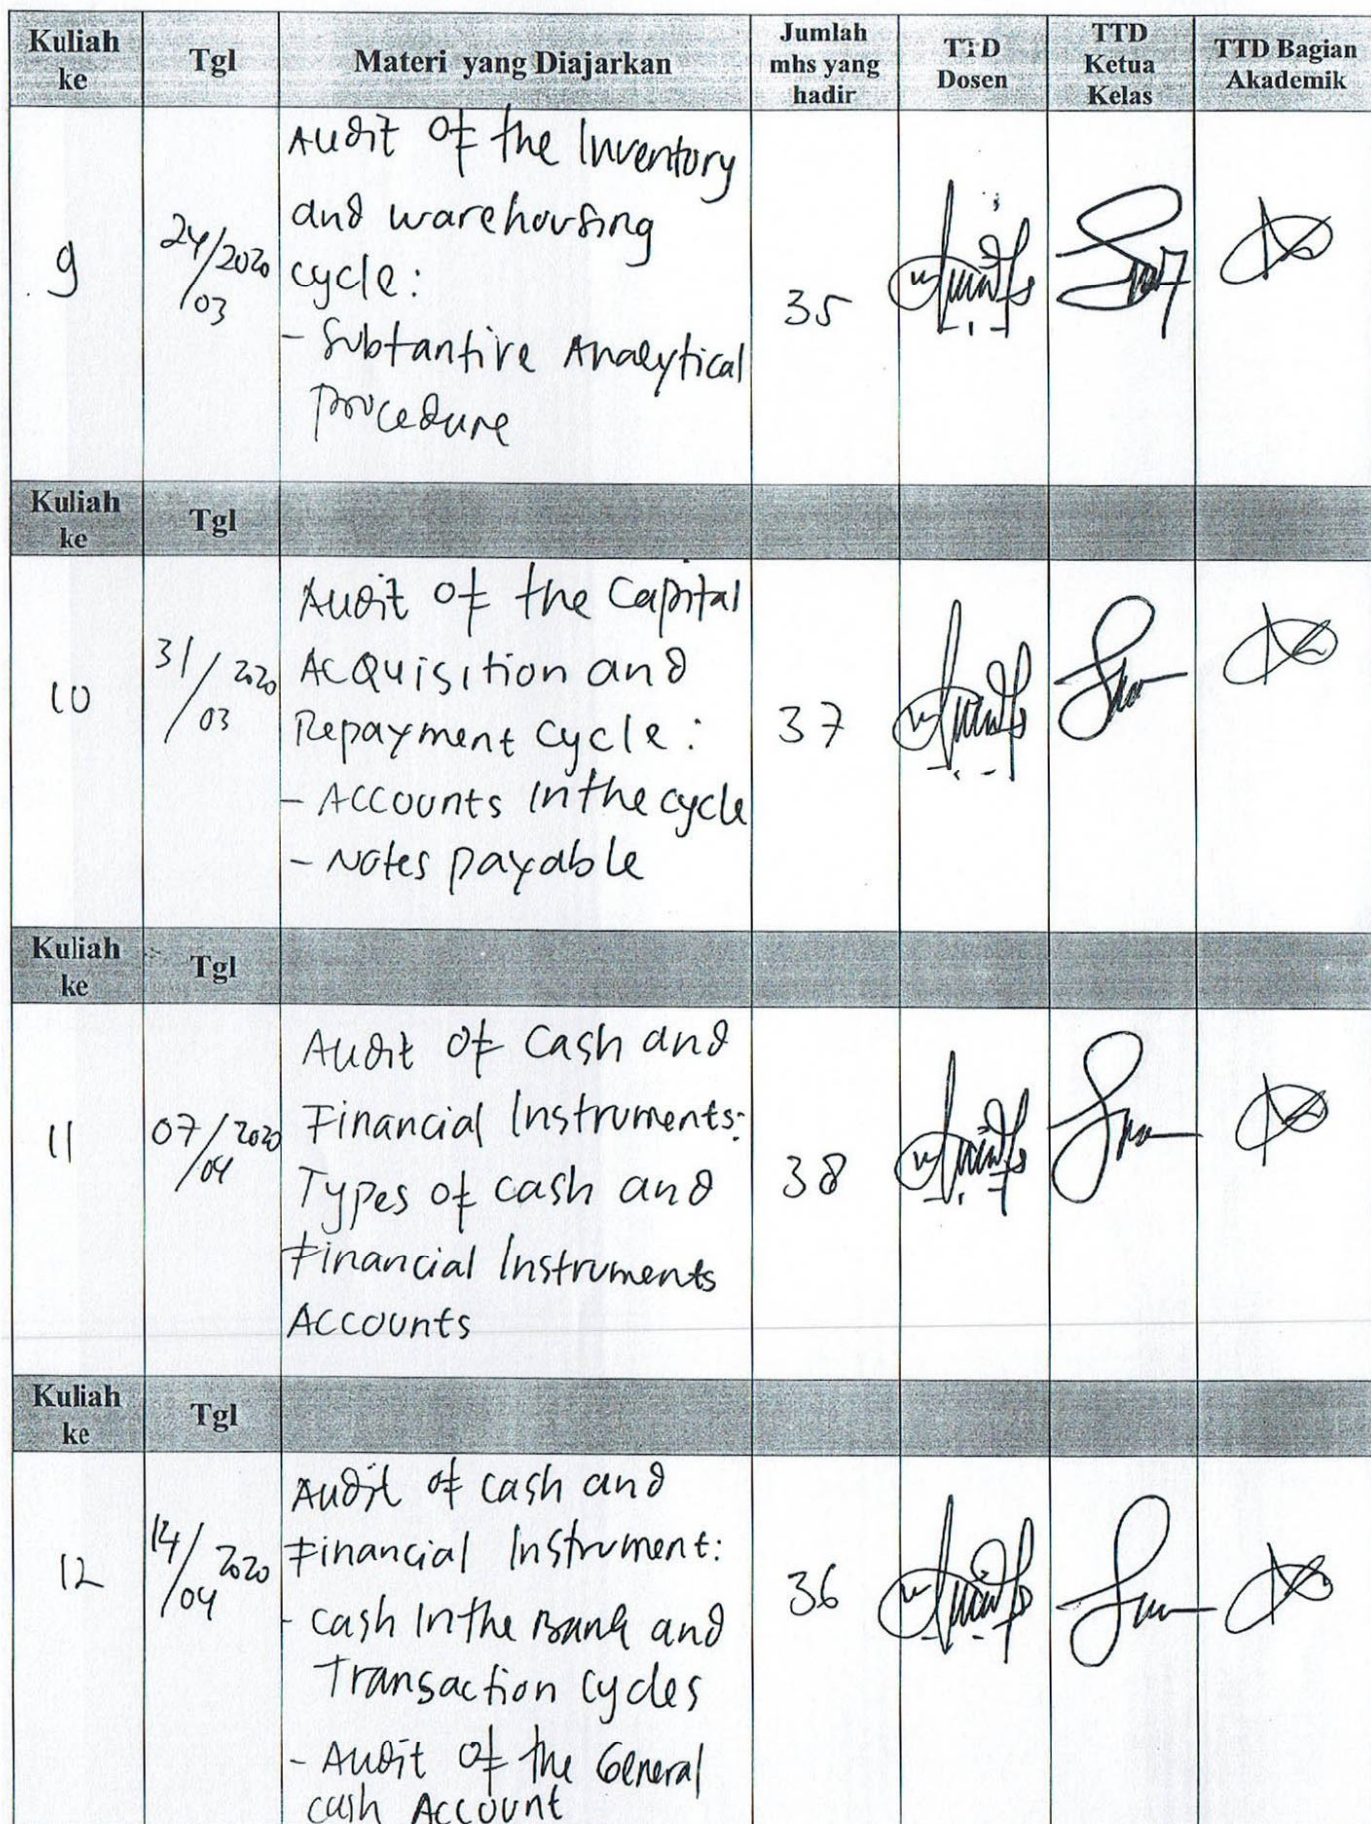 Kuliah ke
Tgl
Materi yang Diajarkan
Jumlah mhs yang hadir
TTD Dosen
TTD Ketua Kelas
TTD Bagian Akademik
9
24/2020
/03
Audit of the Inventory
and warehousing
cycle:
- Subtantive Analytical
Procedure
35
Kuliah ke
Tgl
10
31/2020
/03
Audit of the Capital
Acquisition and
Repayment cycle:
- Accounts in the cycle
- Notes payable
37
Kuliah ke
Tgl
11
07/2020
/04
Audit of Cash and
Financial Instruments:
Types of cash and
Financial Instruments
Accounts
38
Kuliah ke
Tgl
12
14/2020
/04
Audit of cash and
Financial Instrument:
- cash in the Bank and
Transaction cycles
- Audit of the General
cash Account
36